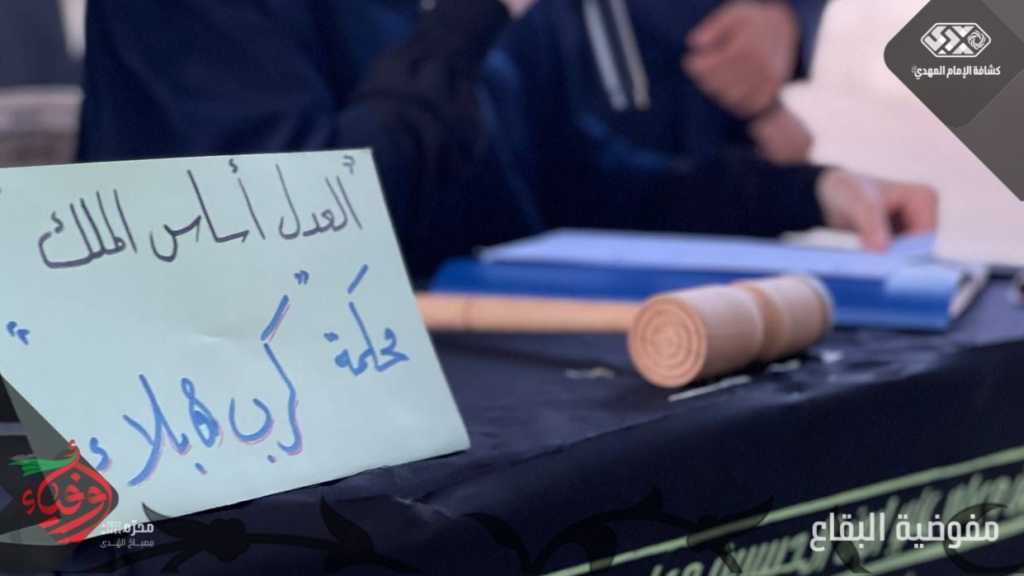 كشافة الإمام المهدي
"العدل أساس الملك"
محكمة "كرب & بلاء"
أوفياء
محرّم
مصباح الهدى
مفوضية البقاع